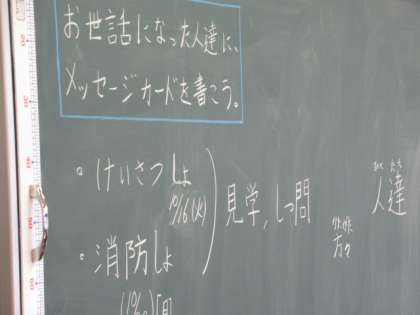 お世話になった人達に、
メッセージカードを書こう。
・けいさつしょ
10/16(火)
・消防しょ
見学,しつ問
方々
人達
ひと たち